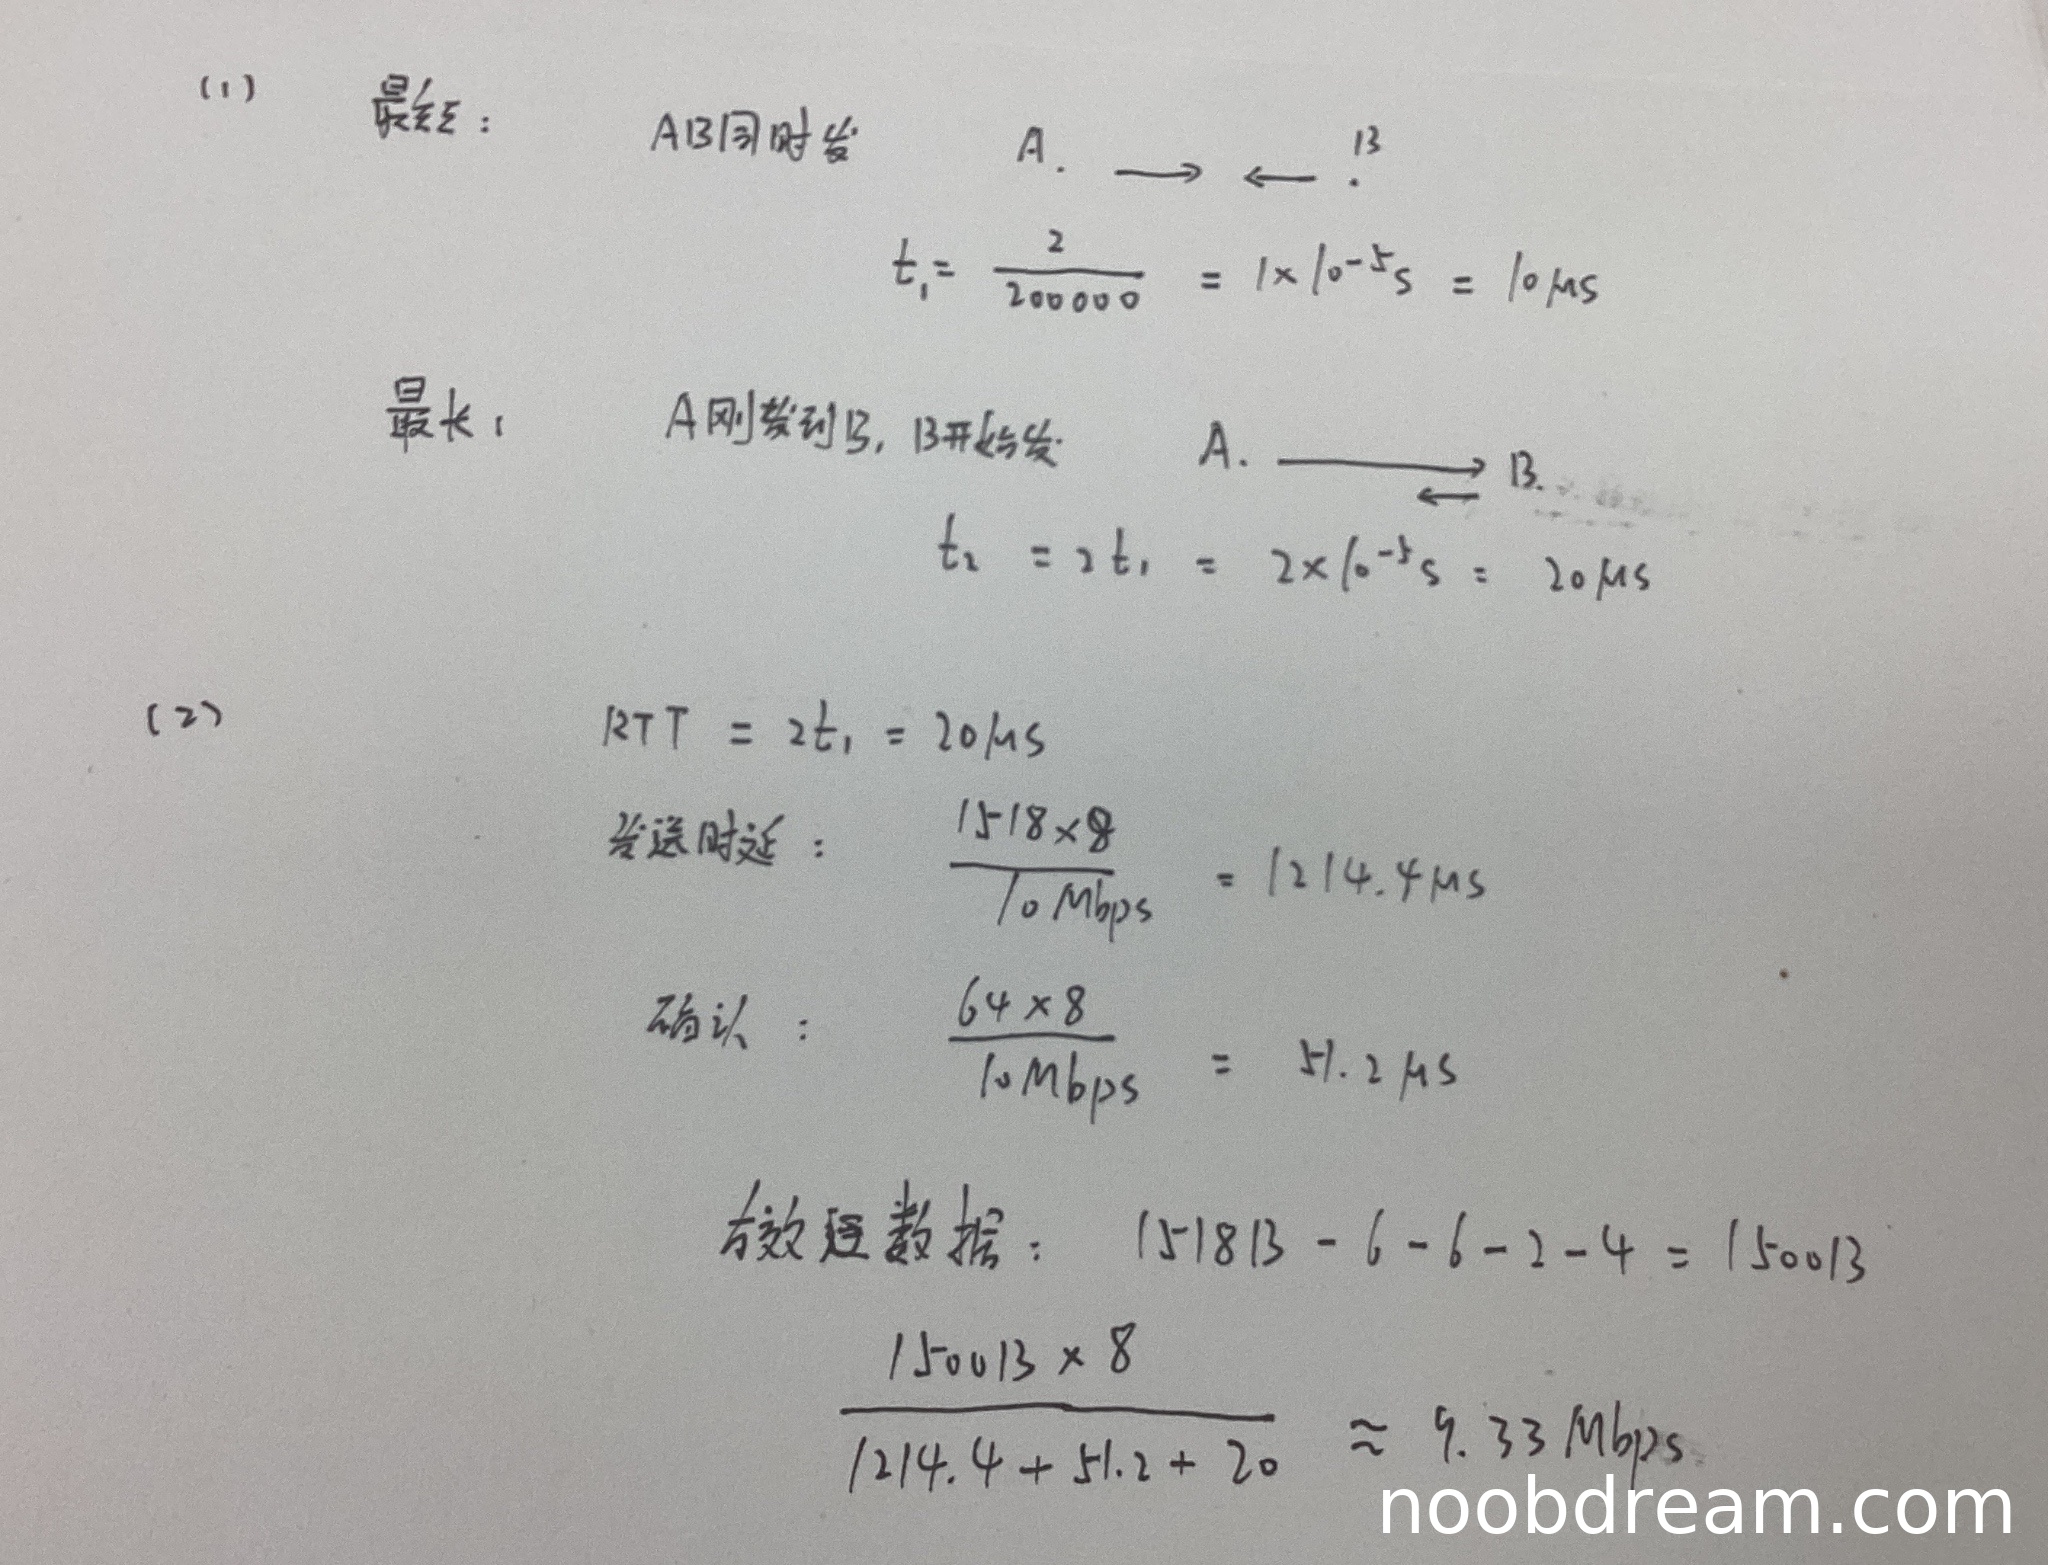 (1) 最短: AB同时发 A. → ← B.
t₁ = 2/200000 = 1×10⁻⁵s = 10μs
最长: A刚发到B, B开始发 A. → ← B.
t₂ = 2t₁ = 2×10⁻⁵s = 20μs
(2) RTT = 2t₁ = 20μs
发送时延: 1518×8/10Mbps = 1214.4μs
确认: 64×8/10Mbps = 51.2μs
有效数据: 1518B - 6 - 6 - 2 - 4 = 1500B
1500B×8/1214.4+51.2+20 ≈ 9.33Mbps
noobdream.com